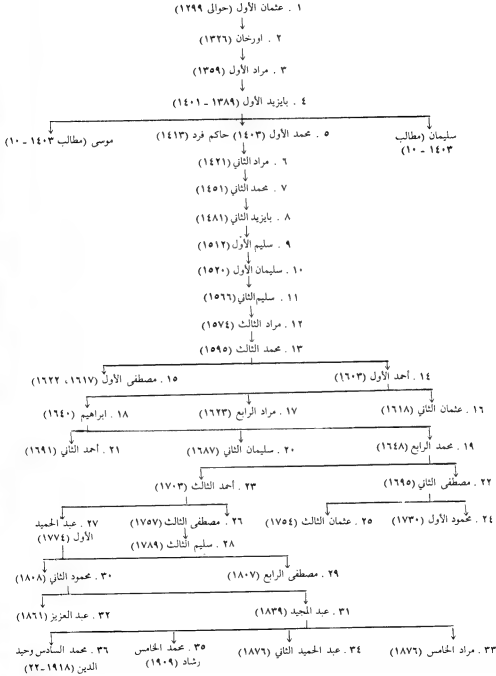 ١ . عثمان الأول (حوالى ١٢٩٩)
٢ . اورخان (١٣٢٦)
٣ . مراد الأول (١٣٥٩)
٤ . بايزيد الأول (١٣٨٩ - ١٤٠١)
سليمان (مطالب
١٤٠٣ - ١٠)
٥ . محمد الأول (١٤٠٣) حاكم فرد (١٤١٣)
موسى (مطالب ١٤٠٣ - ١٠)
٦ . مراد الثاني (١٤٢١)
٧ . محمد الثاني (١٤٥١)
٨ . بايزيد الثاني (١٤٨١)
٩ . سليم الأول (١٥١٢)
١٠ . سليمان الأول (١٥٢٠)
١١ . سليم الثاني (١٥٦٦)
١٢ . مراد الثالث (١٥٧٤)
١٣ . محمد الثالث (١٥٩٥)
١٤ . أحمد الأول (١٦٠٣)
١٥ . مصطفى الأول (١٦١٧، ١٦٢٢)
١٦ . عثمان الثاني (١٦١٨)
١٧ . مراد الرابع (١٦٢٣)
١٨ . ابراهيم (١٦٤٠)
١٩ . محمد الرابع (١٦٤٨)
٢٠ . سليمان الثاني (١٦٨٧)
٢١ . أحمد الثاني (١٦٩١)
٢٢ . مصطفى الثاني (١٦٩٥)
٢٣ . أحمد الثالث (١٧٠٣)
٢٤ . محمود الأول (١٧٣٠)
٢٥ . عثمان الثالث (١٧٥٤)
٢٦ . مصطفى الثالث (١٧٥٧)
٢٧ . عبد الحميد
الأول (١٧٧٤)
٢٨ . سليم الثالث (١٧٨٩)
٢٩ . مصطفى الرابع (١٨٠٧)
٣٠ . محمود الثاني (١٨٠٨)
٣١ . عبد المجيد (١٨٣٩)
٣٢ . عبد العزيز (١٨٦١)
٣٣ . مراد الخامس (١٨٧٦)
٣٤ . عبد الحميد الثاني (١٨٧٦)
٣٥ . محمد الخامس
رشاد (١٩٠٩)
٣٦ . محمد السادس وحيد
الدين (١٩١٨-٢٢)